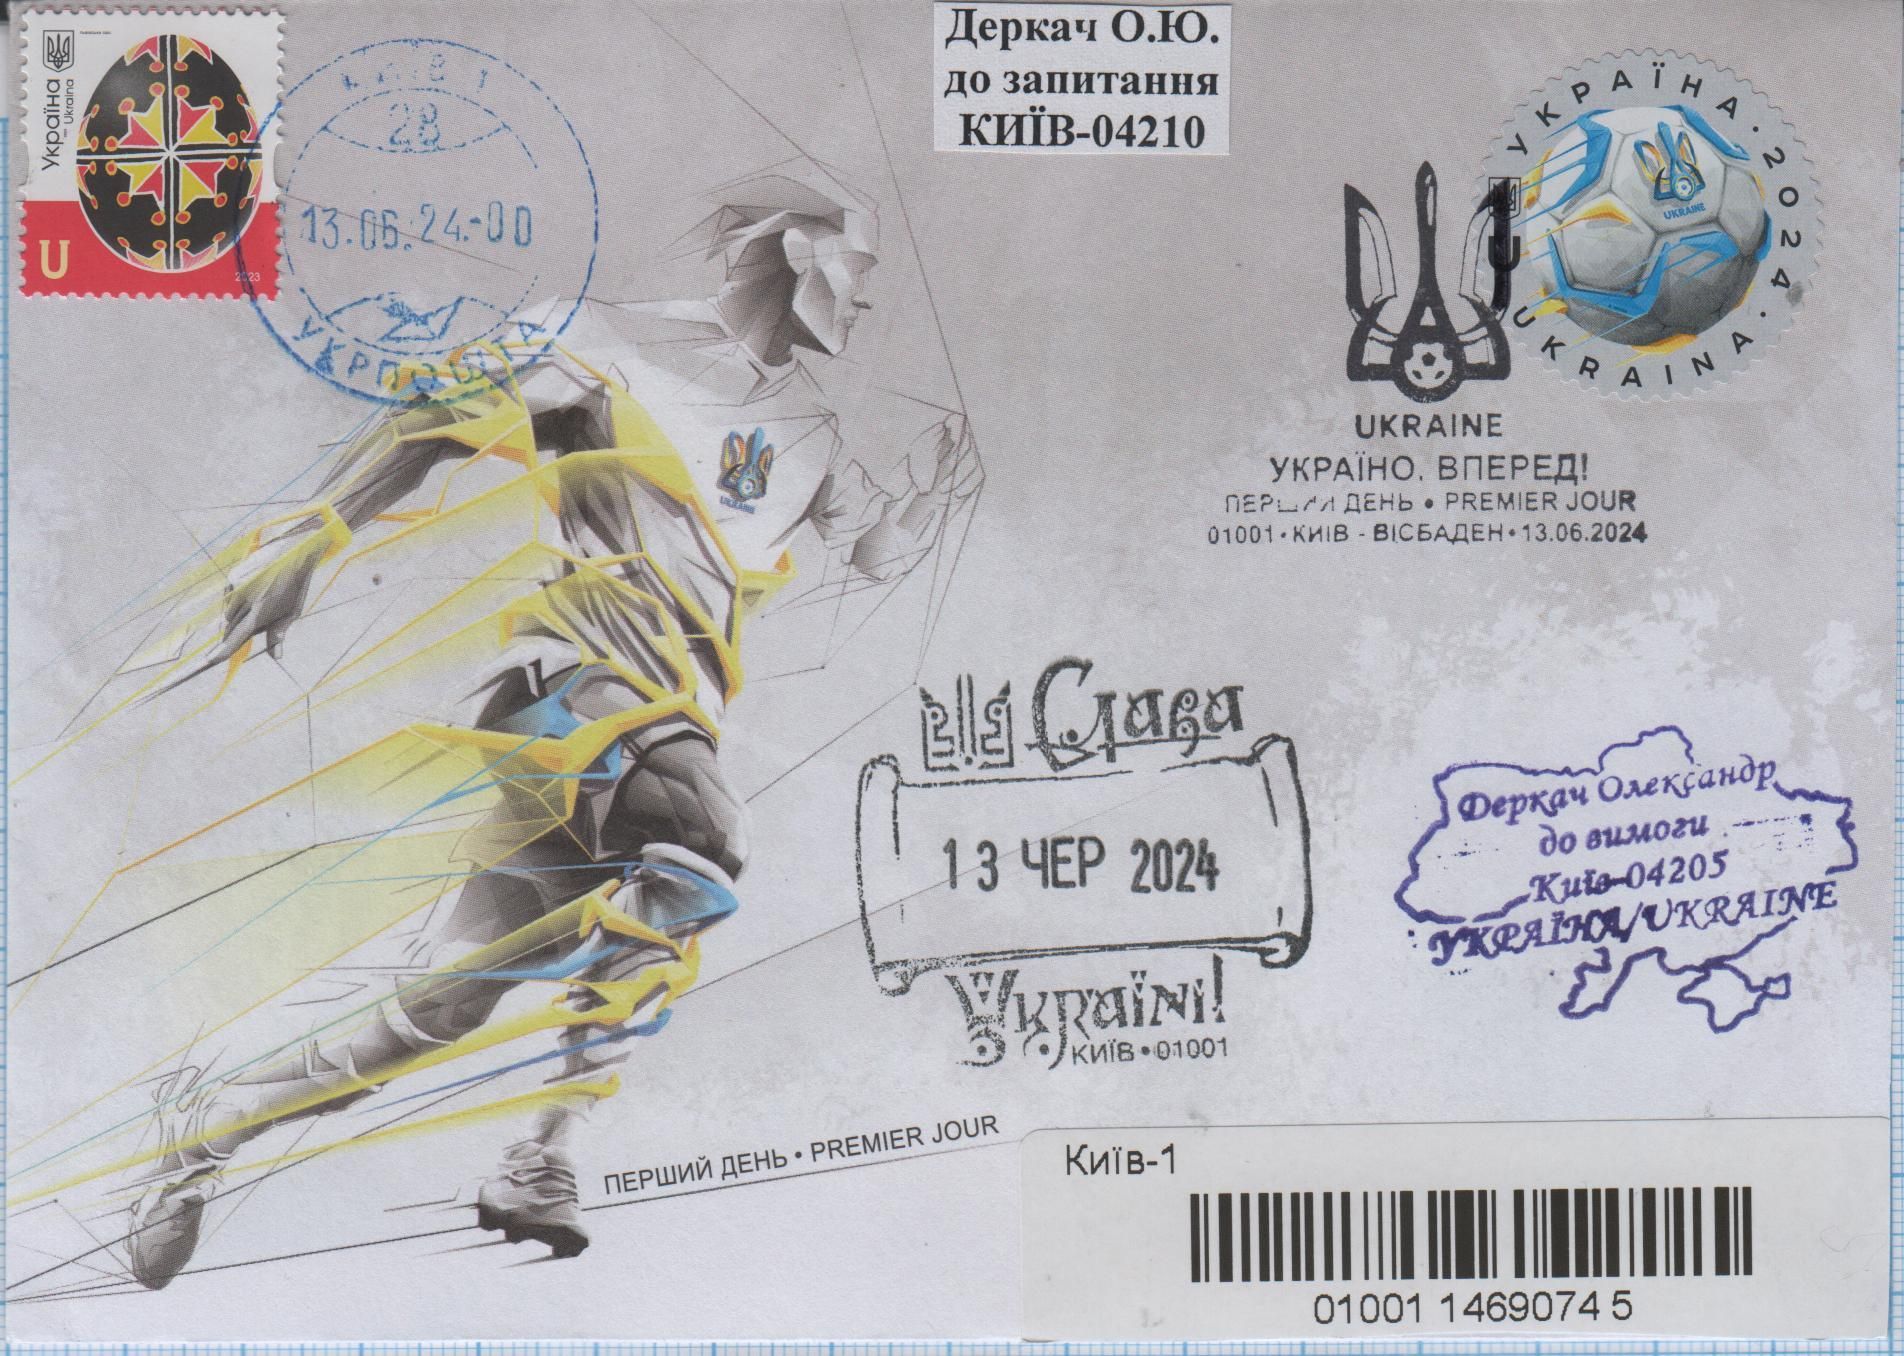 Україна
Ukraina
U
2023
28
13.06.24.-00
УКРПОШТА
Деркач О.Ю.
до запитання
КИЇВ-04210
УКРАЇНА · 2024 ·
UKRAINA
UKRAINE
U
UKRAINE
УКРАЇНО, ВПЕРЕД!
ПЕРШИЙ ДЕНЬ • PREMIER JOUR
01001 • КИЇВ - ВІСБАДЕН • 13.06.2024
UKRAINE
Слава
13 ЧЕР 2024
Україні!
КИЇВ • 01001
Деркач Олександр
до вимоги
Київ-04205
УКРАЇНА/UKRAINE
ПЕРШИЙ ДЕНЬ • PREMIER JOUR
Київ-1
01001 1469074 5